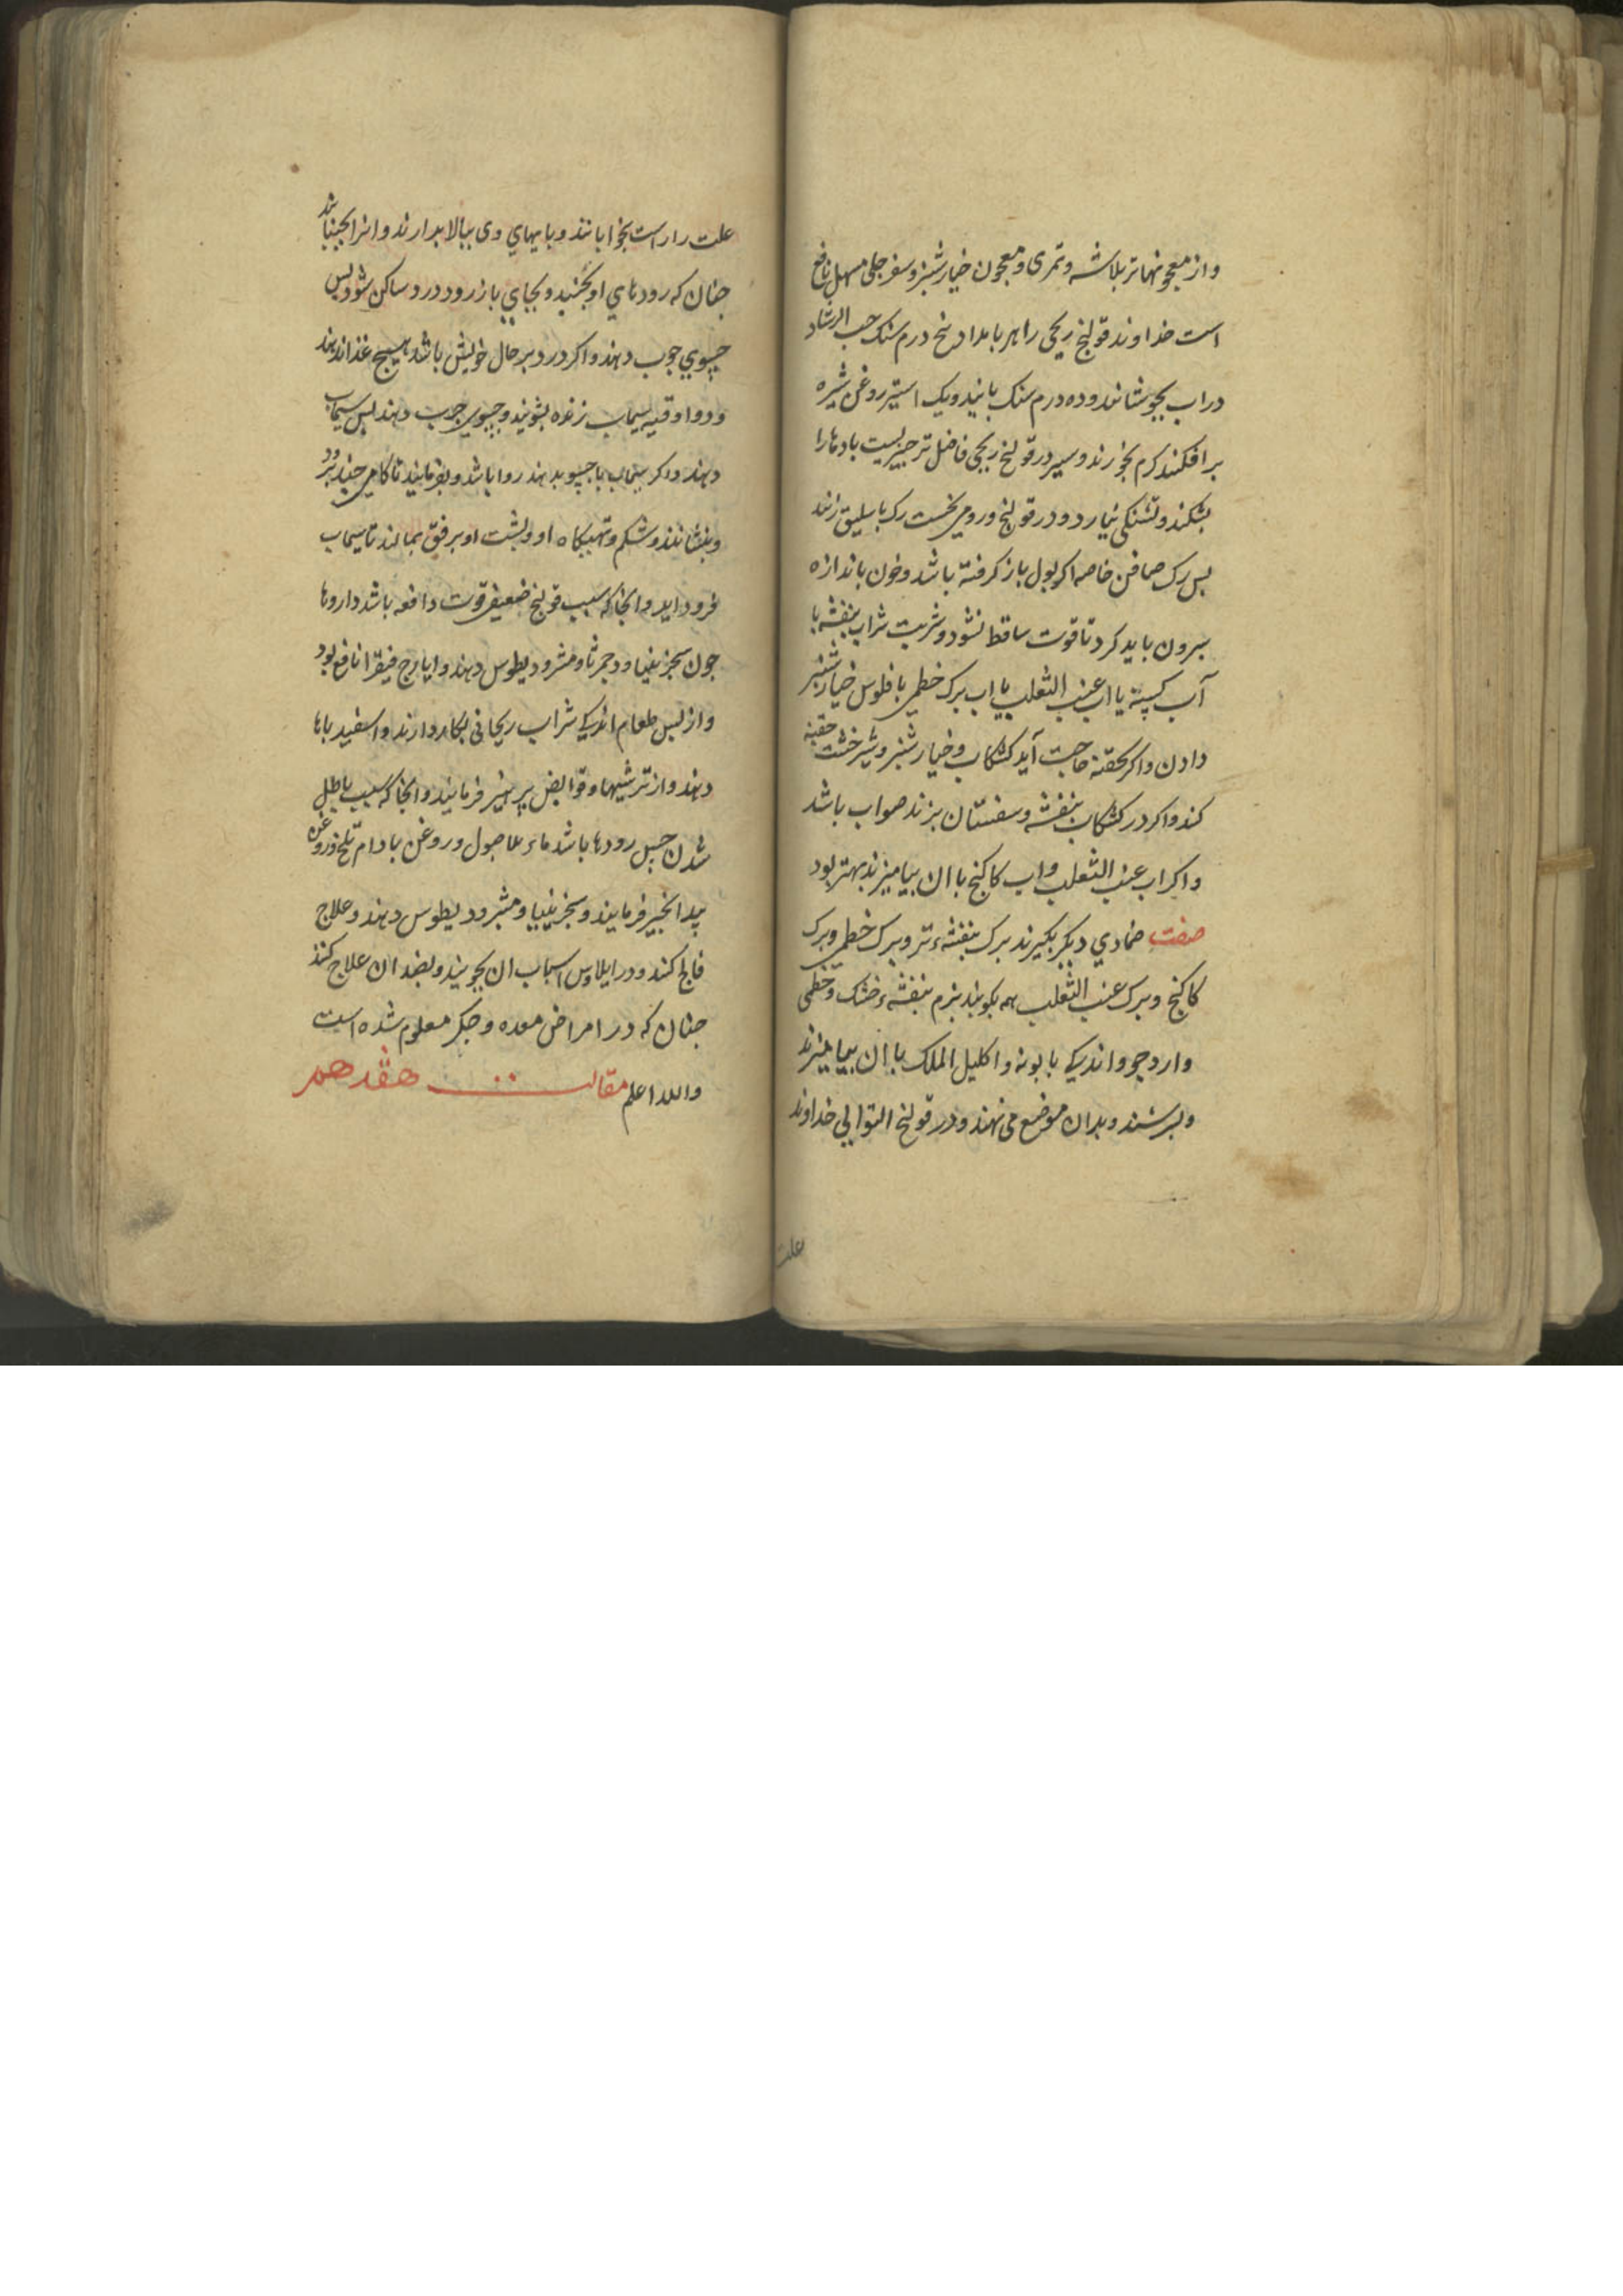 واز معجونها تربلاشه وتمری ومعجون خیارشنبر وسفرجلی مسهل نافع
است خداوند قولنج ریحی را هر بامداد پنج درم سنک حب الرشاد
در اب بجوشانند وده درم سنک بانید ویک استیر روغن شیره
برافکنند کرم بخورند وسیر در قولنج ریحی فاضل تر چیزیست بادها را
بشکند وتشنکی نیارد ودر قولنج ورومی نخست رک باسلیق زنند
بس رک صافن خاصه اکر بول باز کرفته باشد وخون باندازه
بیرون باید کرد تا قوت ساقط نشود وشربت شراب بنفشه با
آب یا اب عنب الثعلب یا اب برک خطمی با فلوس خیارشنبر
دادن واکر بحقنه حاجت آید کشکاب وخیارشنبر وشیرخشت حقنه
کنند واکر در کشکاب بنفشه وسفستان بزند صواب باشد
واکر اب عنب الثعلب واب کاکنج با ان بیامیزند بهتر بود
صفت ضمادی دیکر بکیرند برک بنفشهء تر وبرک خطمی وبرک
کاکنج وبرک عنب الثعلب همه بکوبند بنرم بنفشهء خشک وخطمی
وارد جو واندکی بابونه واکلیل الملک با ان بیامیزند
وبسرشند وبدان موضع می نهند ودر قولنج التوایی خداوند
علت
علت را راست بخوابانند وبایهای وی ببالا بردارند وانرا بجنبانند
جنان که رودهای او بجنبد وبجای باز رود درد ساکن شود بس
جبوی جرب دهند واکر درد بر حال خویش باشد هیچ غذا ندهند
ودو اوقیه سیماب زنده بشویند وجبوی جرب دهند بس سیماب
دهند واکر سیماب با جبو بدهند روا باشد وبفرمایند تا کامی جند برود
وبنشانند وشکم وتهیکاه او وبشت او برفق بمالند تا سیماب
فرود اید وانجا که سبب قولنج ضعیفی قوت دافعه باشد داروها
جون سجزینیا ودحمرثا ومثرودیطوس دهند وایارج فیقرا نافع بود
واز بس طعام اندکی شراب ریحانی بکار دارند واسفیدباها
دهند واز ترشیها وقوابض برهیز فرمایند وانجا که سبب باطل
شدن حس رودها باشد ماء الاصول وروغن بادام تلخ وروغن
بیدانجیر فرمایند وسجزینیا ومثرودیطوس دهند وعلاج
فالج کنند ودر ایلاوس اسباب ان بجویند وبضد ان علاج کنند
جنان که در امراض معده وجکر معلوم شده است
والله اعلم مقالت هفدهم